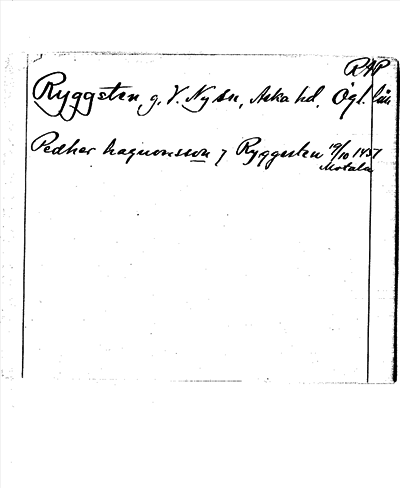 RAP
Ryggsten, g. V. Ny sn, Aska hd, Ögl. län
Pedher hagnonsson j Ryggesten 19/10 1437
Motala